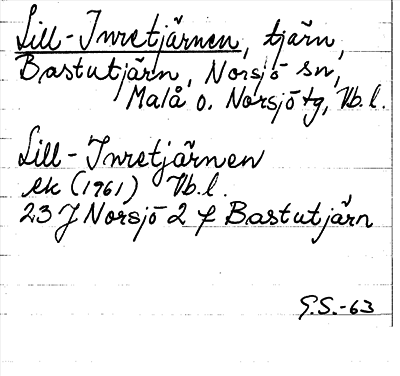 Lill-Inretjärnen, tjärn,
Bastutjärn, Norsjö sn,
Malå o. Norsjö tg, Vb.l.
Lill-Inretjärnen
ek (1961) Vb.l.
23 J Norsjö 2 f Bastutjärn
G.S.-63